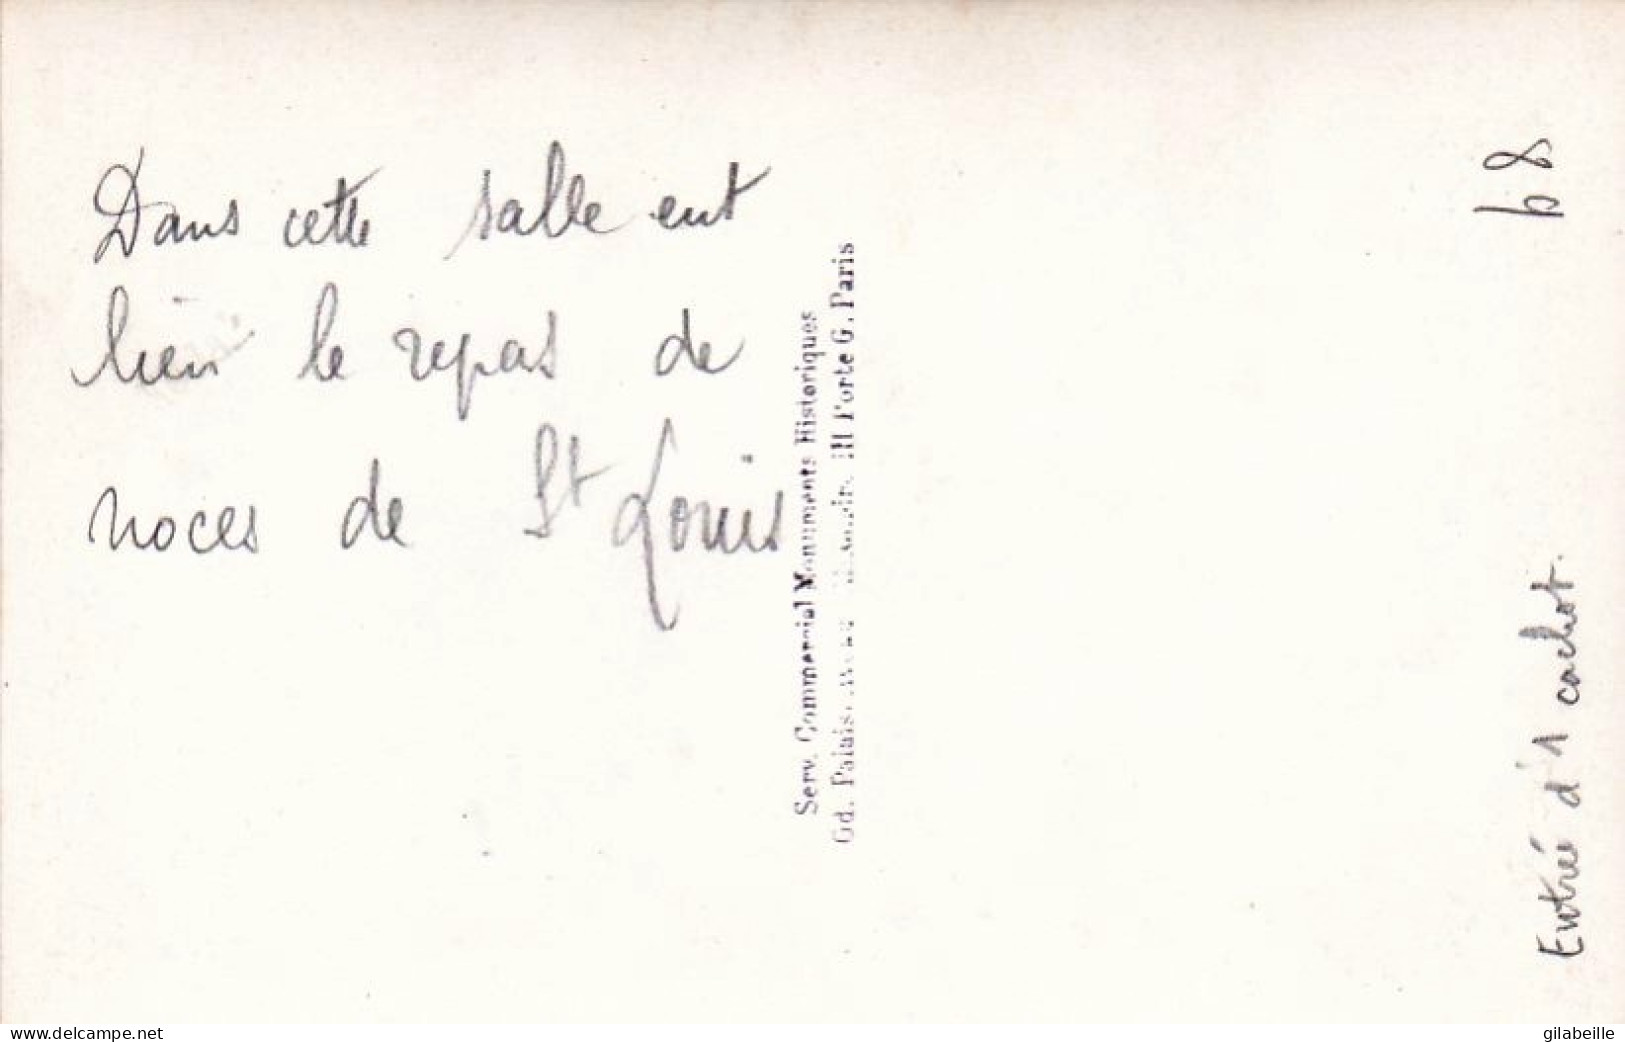 Dans cette salle eut
lieu le repas de
noces de St Louis
Serv. Commercial Monuments Historiques
Gd. Palais Porte G. Paris
68
Entrée d'1 cachot.
www.delcampe.net
gilabeille